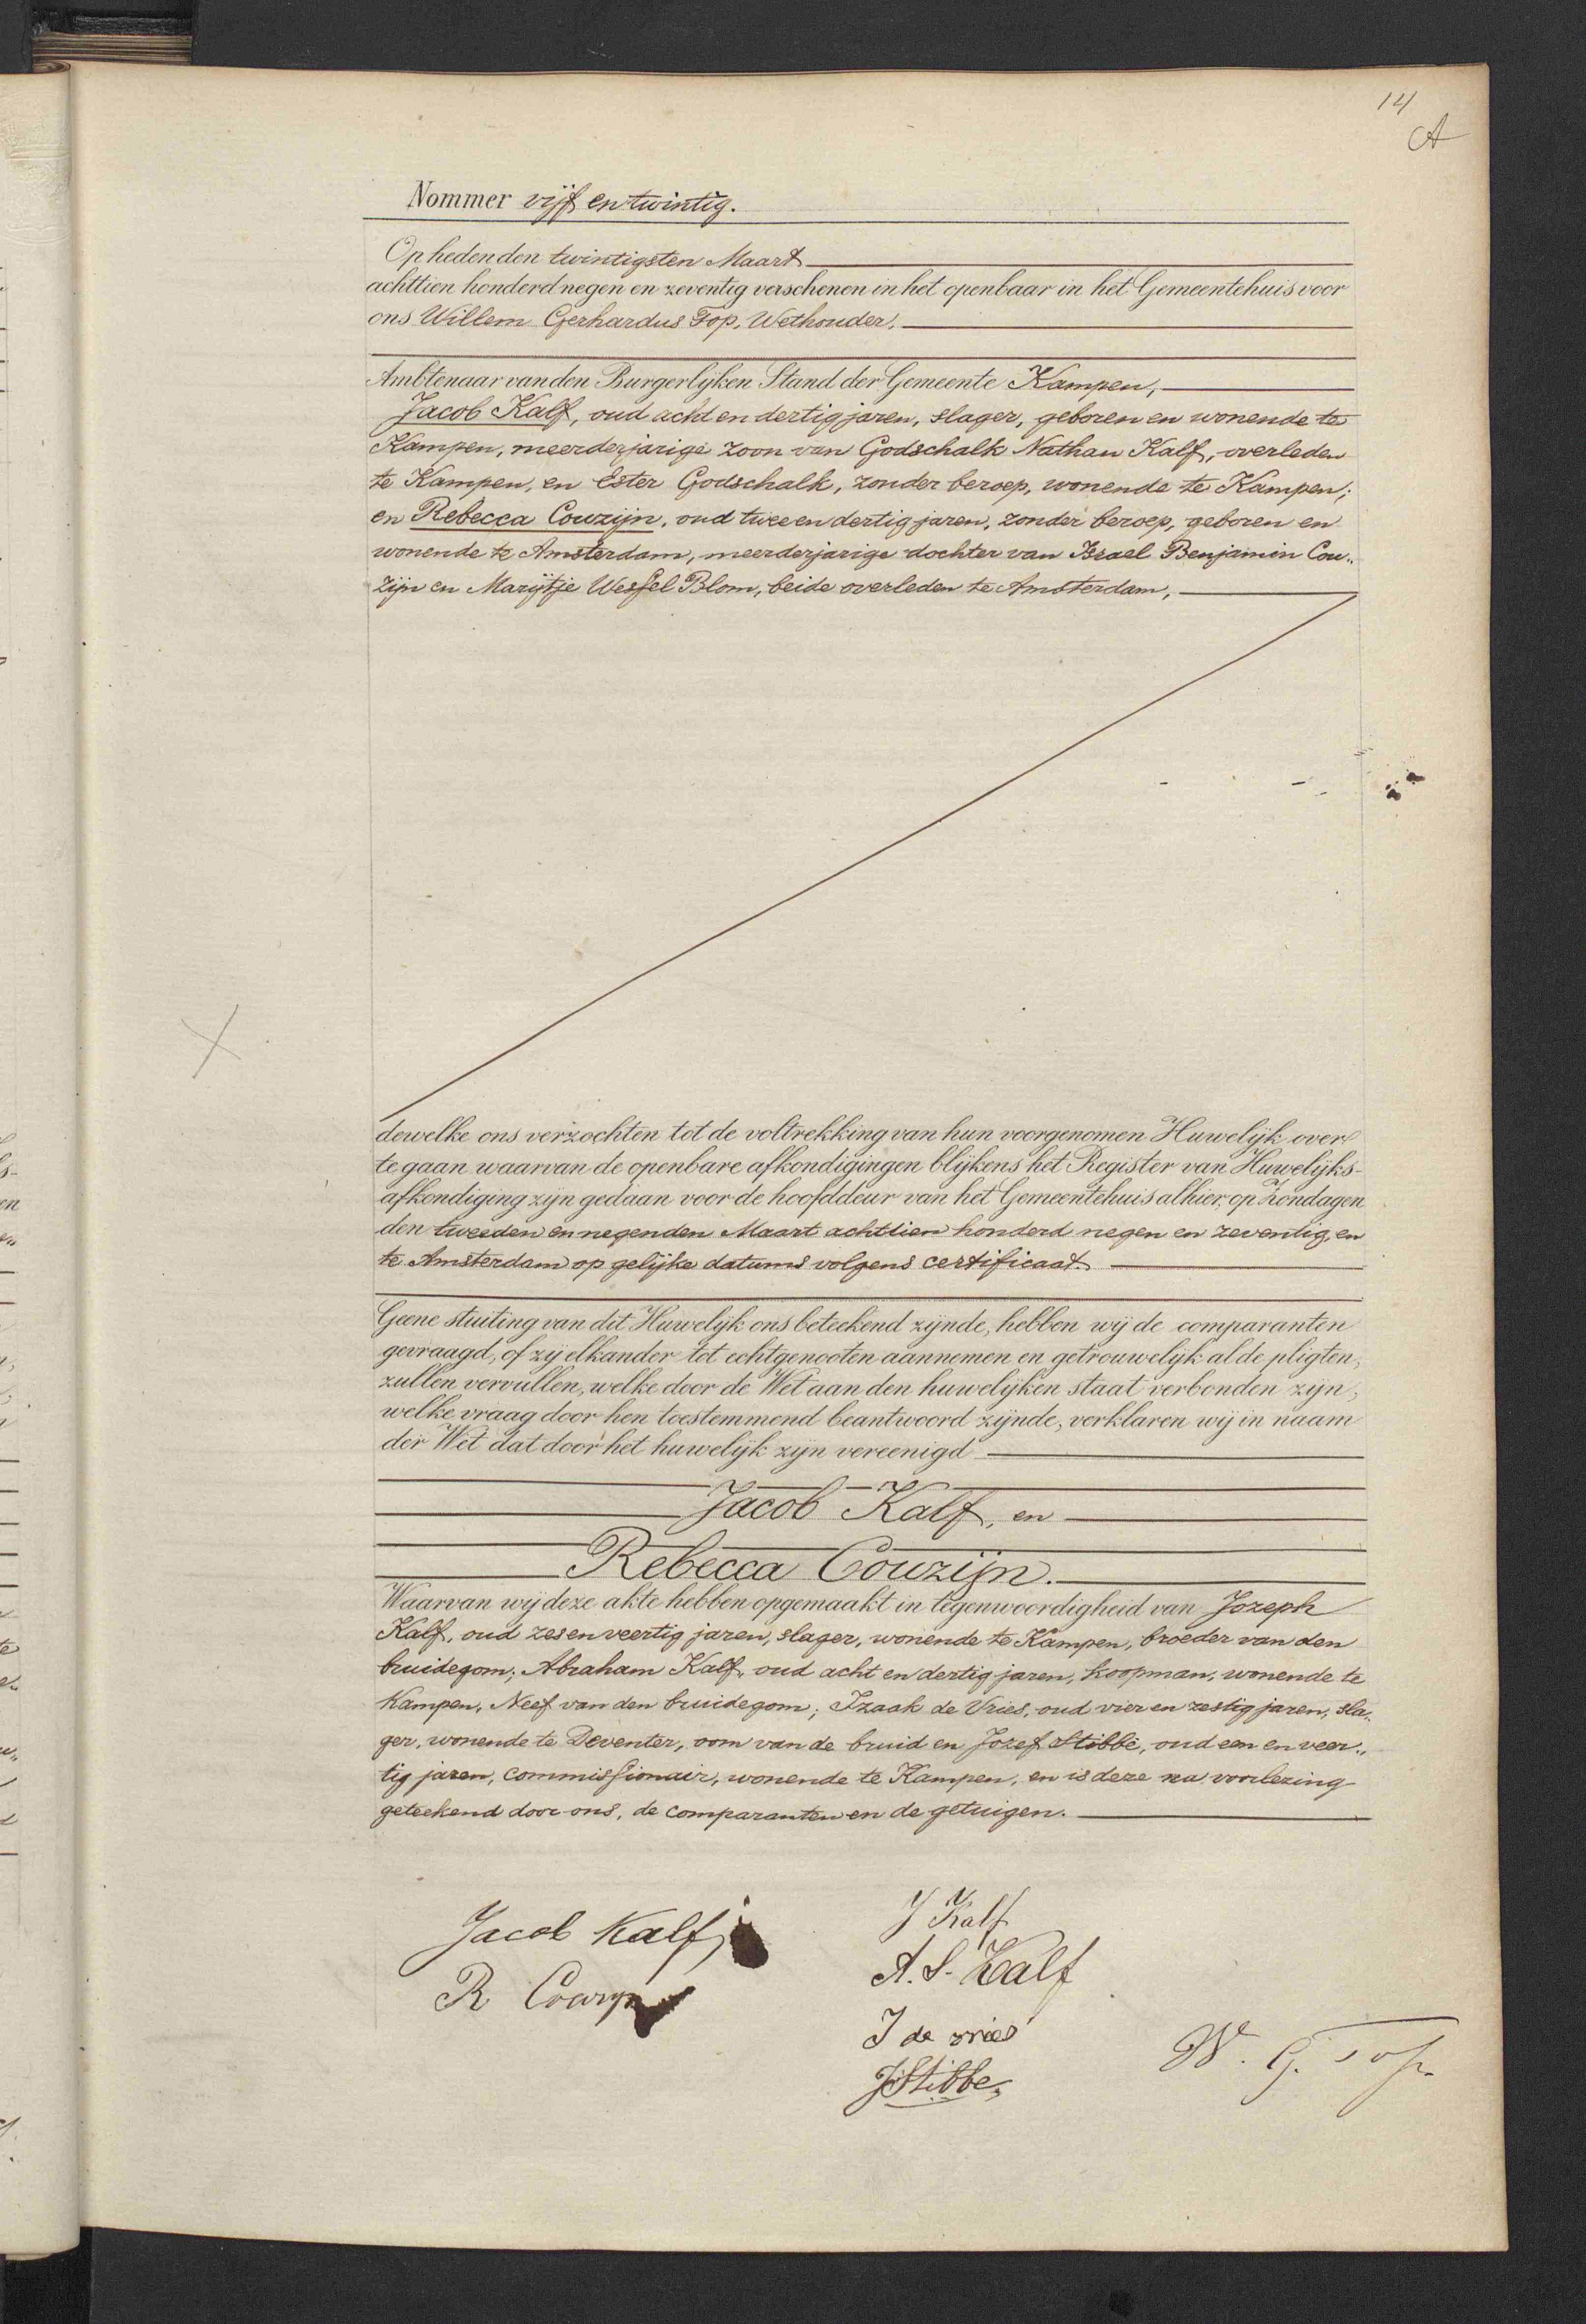 14
A
Nommer vijf en twintig.
Op heden den twintigsten Maart
achttien honderd negen en zeventig verschenen in het openbaar in het Gemeentehuis voor
ons Willem Gerhardus Top, Wethouder,
Ambtenaar van den Burgerlijken Stand der Gemeente Kampen,
Jacob Kalf, oud acht en dertig jaren, slager, geboren en wonende te
Kampen, meerderjarige zoon van Godschalk Nathan Kalf, overleden
te Kampen, en Ester Godschalk, zonder beroep, wonende te Kampen;
en Rebecca Couzijn, oud twee en dertig jaren, zonder beroep, geboren en
wonende te Amsterdam, meerderjarige dochter van Israel Benjamin Cou„
zijn en Marijtje Wessel Blom, beide overleden te Amsterdam,
dewelke ons verzochten tot de voltrekking van hun voorgenomen Huwelijk over
te gaan waarvan de openbare afkondigingen blijkens het Register van Huwelijks-
afkondiging zijn gedaan voor de hoofddeur van het Gemeentehuis alhier, op Zondagen
den tweeden en negenden Maart achttien honderd negen en zeventig, en
te Amsterdam op gelijke datums volgens certificaat.
Geene stuiting van dit Huwelijk ons beteekend zijnde, hebben wij de comparanten
gevraagd, of zij elkander tot echtgenooten aannemen en getrouwelijk al de pligten,
zullen vervullen, welke door de Wet aan den huwelijken staat verbonden zijn,
welke vraag door hen toestemmend beantwoord zijnde, verklaren wij in naam
der Wet dat door het huwelijk zijn vereenigd
Jacob Kalf, en
Rebecca Couzijn.
Waarvan wij deze akte hebben opgemaakt in tegenwoordigheid van Jozeph
Kalf, oud zes en veertig jaren, slager, wonende te Kampen, broeder van den
bruidegom; Abraham Kalf, oud acht en dertig jaren, koopman, wonende te
Kampen, Neef van den bruidegom; Izaak de Vries, oud vier en zestig jaren, sla„
ger, wonende te Deventer, oom van de bruid en Jozef Stibbe, oud een en veer„
tig jaren, commissionair, wonende te Kampen, en is deze na voorlezing
geteekend door ons, de comparanten en de getuigen.
Jacob Kalf
R Couzyn
J Kalf
A. S. Kalf
I de vries
J Stibbe
W. G. Top.